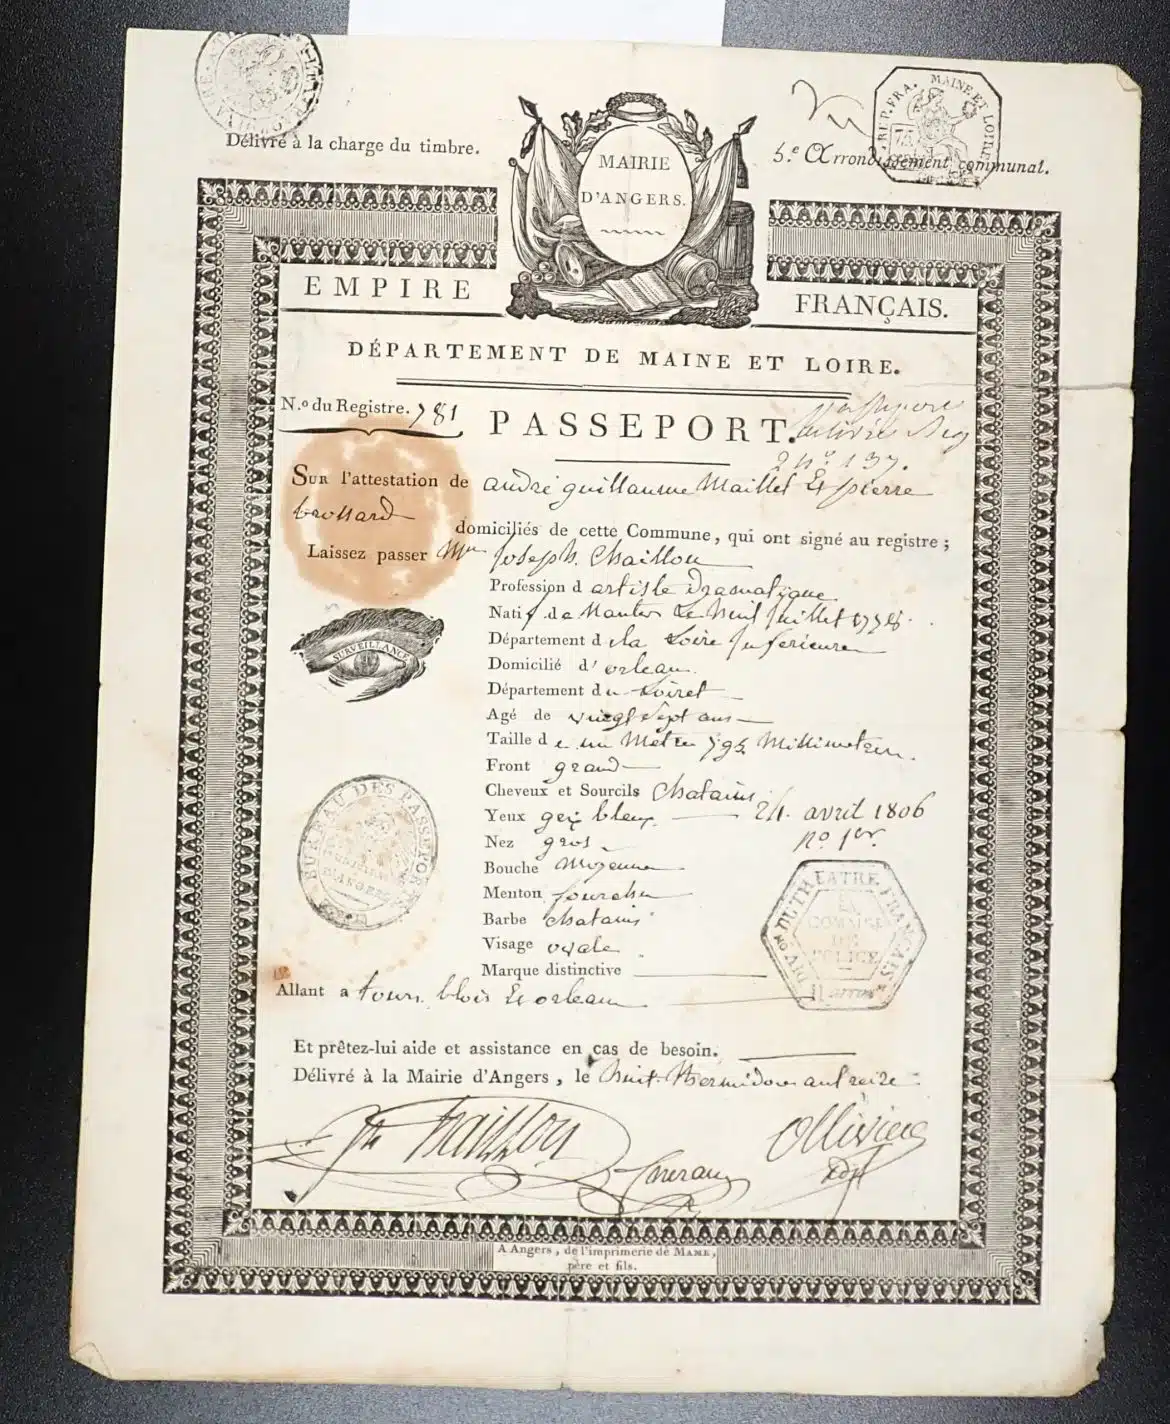 Délivré à la charge du timbre.
MAIRIE
D'ANGERS.
REP. FRA. MAINE ET LOIRE
5.e Arrondissement communal.
EMPIRE FRANÇAIS.
DÉPARTEMENT DE MAINE ET LOIRE.
N.o du Registre. 781
PASSEPORT.
2 n° 137.
Sur l'attestation de andré guillaume Maillet Et pierre
brossard domiciliés de cette Commune, qui ont signé au registre ;
Laissez passer Mr Joseph Chaillou
Profession d artiste dramatique
Natif de Nantes Le huit Juillet 1778.
Département d la Loire Inferieure
Domicilié d' orleans
SURVEILLANCE
Département du Loiret
Agé de vingt sept ans
Taille de un Metre 795 Millimetres.
Front grand
Cheveux et Sourcils Chatains
Yeux gris bleux 24. avril 1806
Nez gros n.o 1er.
Bouche Moyenne
Menton fourchu
Barbe Chatains
Visage ovale
Marque distinctive
BUREAU DES PASSEPORTS
D'ANGERS
DIV.on DU THEATRE FRANÇAIS
COMM.RE
DE
POLICE
Allant a tours blois Et orleans
Et prêtez-lui aide et assistance en cas de besoin.
Délivré à la Mairie d'Angers, le huit Thermidor an treize
Jh Chaillou
Ollivier
adjt
A Angers, de l'imprimerie de Mame,
père et fils.